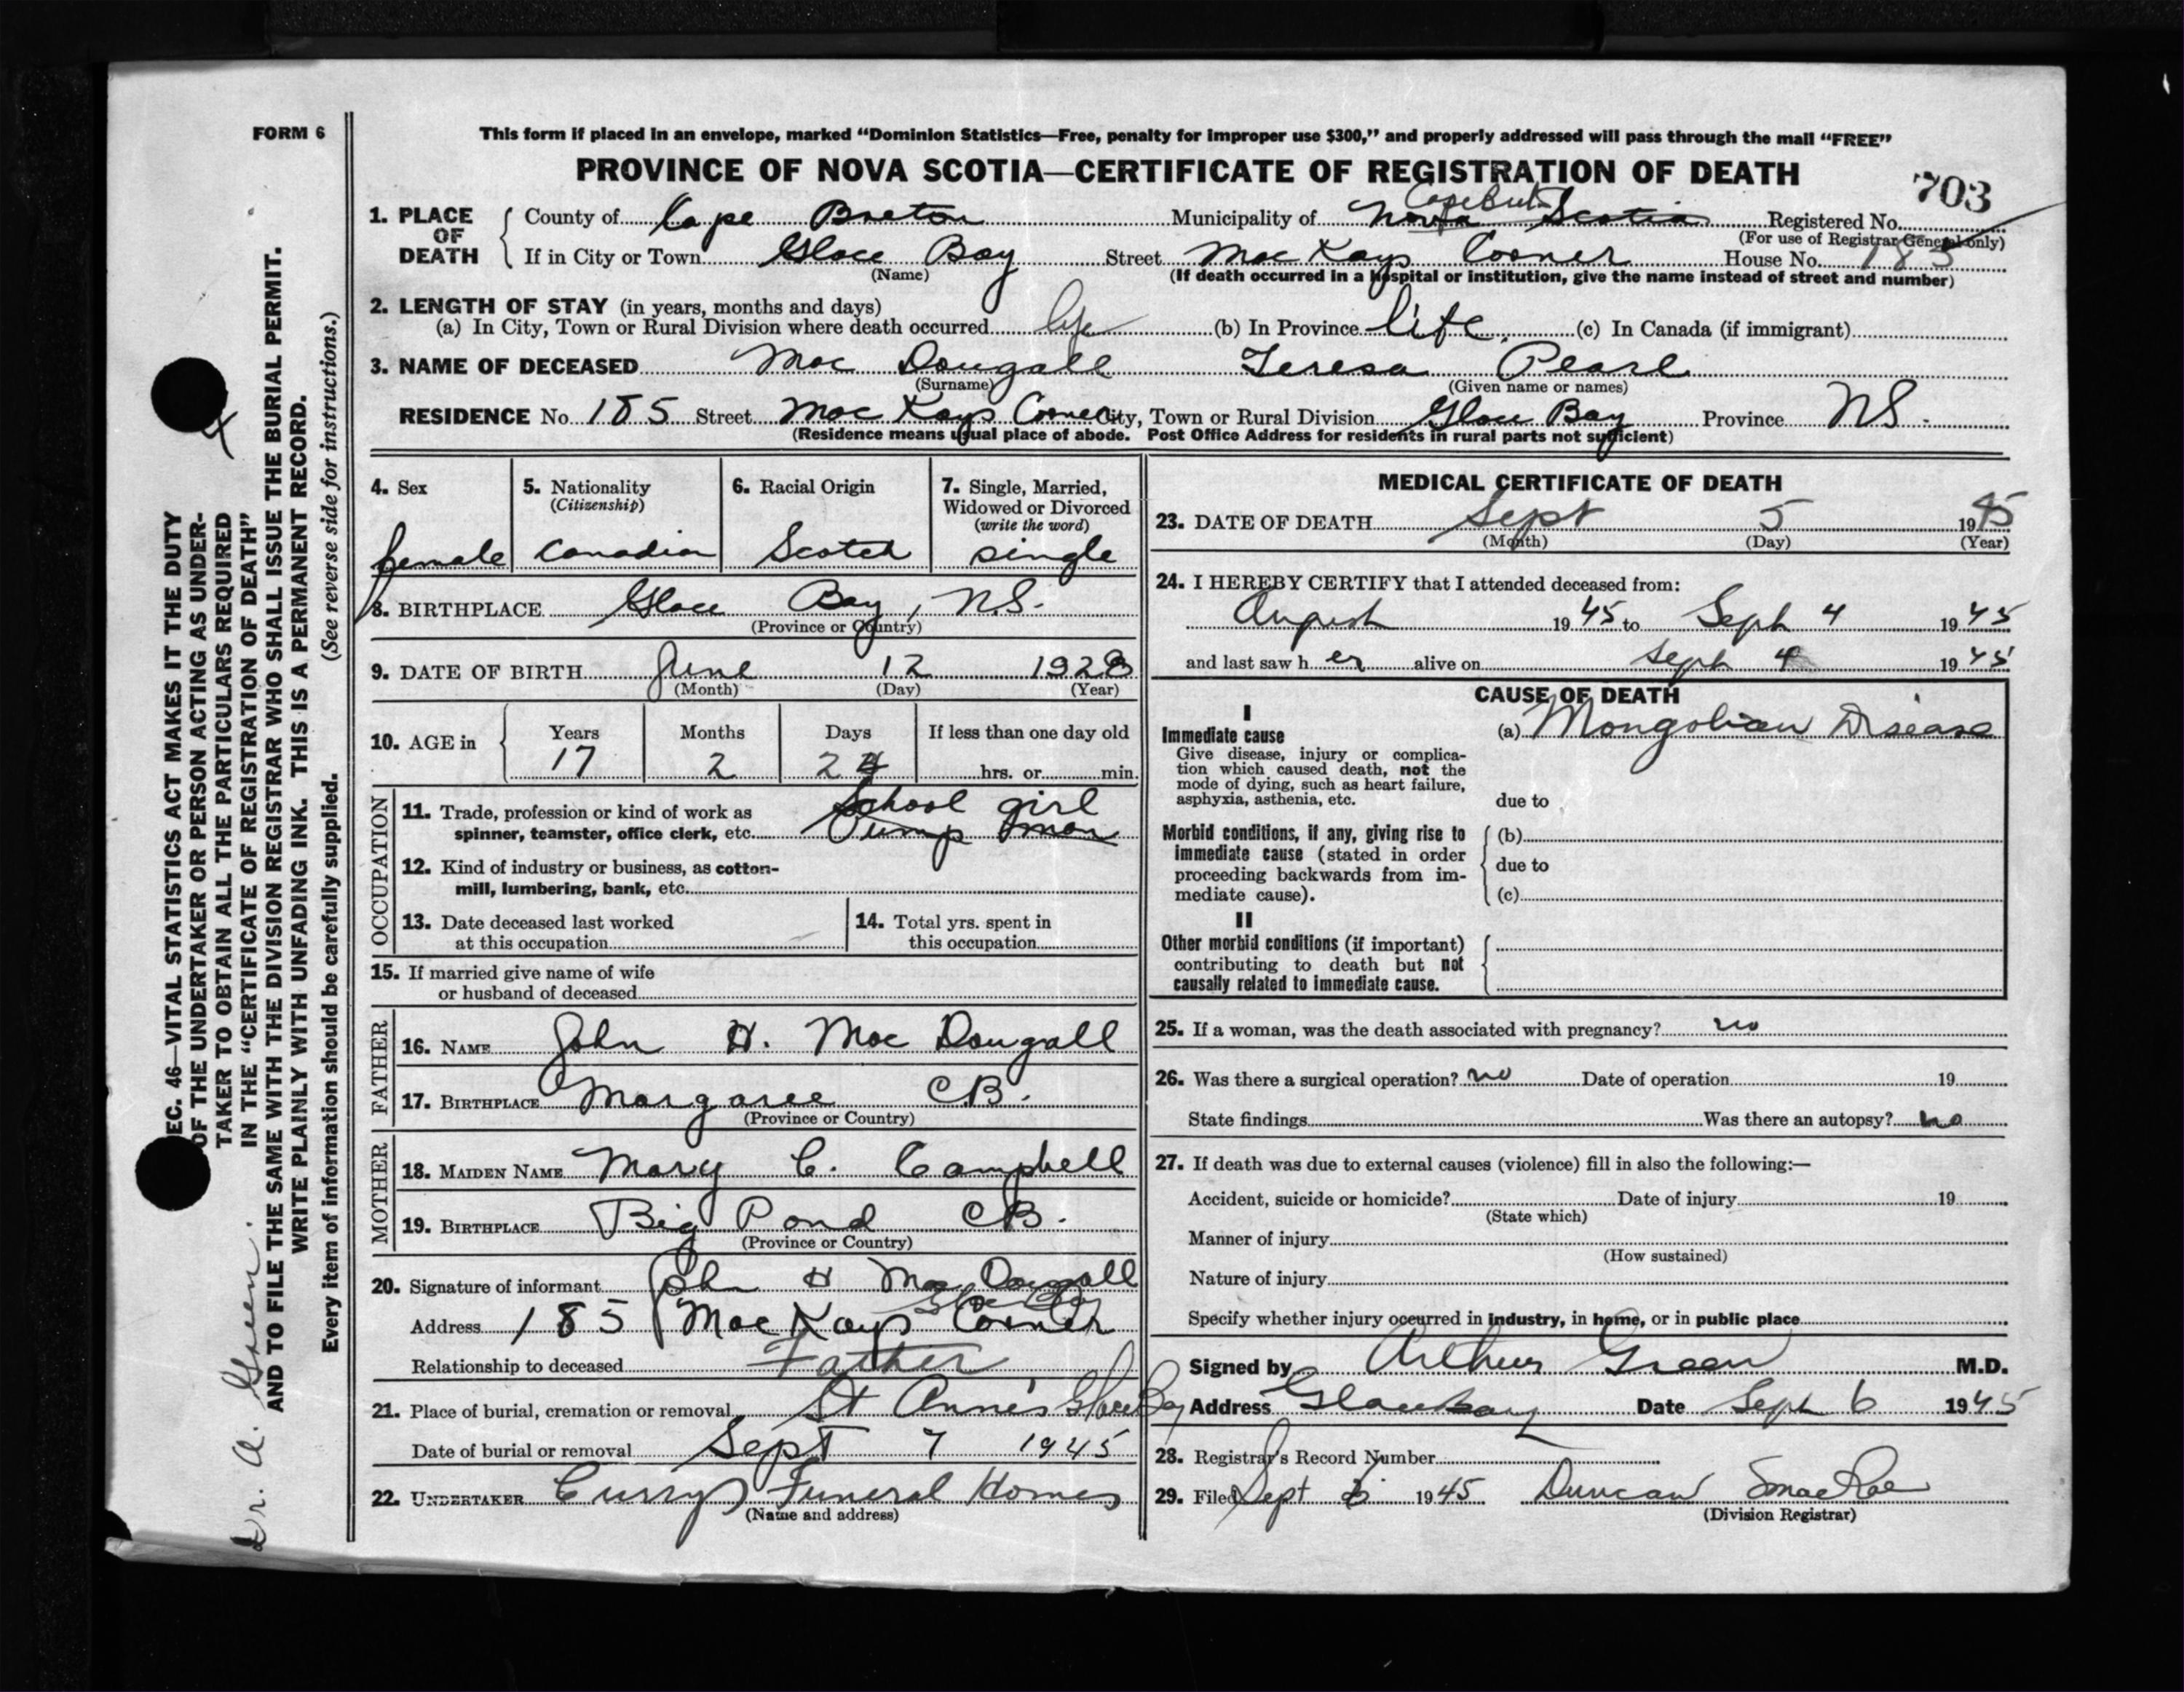 FORM 6
This form if placed in an envelope, marked "Dominion Statistics—Free, penalty for improper use $300," and properly addressed will pass through the mail "FREE"
PROVINCE OF NOVA SCOTIA—CERTIFICATE OF REGISTRATION OF DEATH
703
1. PLACE OF DEATH
County of Cape Breton Municipality of Nova Scotia Registered No.
(For use of Registrar General only)
If in City or Town Glace Bay Street Mac Kays Corner House No. 185
(Name) (If death occurred in a hospital or institution, give the name instead of street and number)
2. LENGTH OF STAY (in years, months and days)
(a) In City, Town or Rural Division where death occurred life (b) In Province life (c) In Canada (if immigrant)
3. NAME OF DECEASED Mac Dougall Teresa Pearl
(Surname) (Given name or names)
RESIDENCE No. 185 Street Mac Kays Corner City, Town or Rural Division Glace Bay Province N.S.
(Residence means usual place of abode. Post Office Address for residents in rural parts not sufficient)
4. Sex female
5. Nationality (Citizenship) Canadian
6. Racial Origin Scotch
7. Single, Married, Widowed or Divorced (write the word) single
8. BIRTHPLACE Glace Bay, N.S.
(Province or Country)
9. DATE OF BIRTH June 12 1928
(Month) (Day) (Year)
10. AGE in Years 17 Months 2 Days 24 If less than one day old hrs. or min.
OCCUPATION
11. Trade, profession or kind of work as School girl
spinner, teamster, office clerk, etc. Pump man
12. Kind of industry or business, as cotton-
mill, lumbering, bank, etc.
13. Date deceased last worked
at this occupation
14. Total yrs. spent in
this occupation
15. If married give name of wife
or husband of deceased
FATHER
16. NAME John H. Mac Dougall
17. BIRTHPLACE Margaree C.B.
(Province or Country)
MOTHER
18. MAIDEN NAME Mary C. Campbell
19. BIRTHPLACE Big Pond C.B.
(Province or Country)
20. Signature of informant John H Mac Dougall
Address 185 Mac Kays Corner
Relationship to deceased Father
21. Place of burial, cremation or removal St Anne's Glace Bay
Date of burial or removal Sept 7 1945
22. UNDERTAKER Currys Funeral Homes
(Name and address)
MEDICAL CERTIFICATE OF DEATH
23. DATE OF DEATH Sept 5 1945
(Month) (Day) (Year)
24. I HEREBY CERTIFY that I attended deceased from:
August 1945 to Sept 4 1945
and last saw her alive on Sept 4 1945
CAUSE OF DEATH
I
Immediate cause
Give disease, injury or complica-
tion which caused death, not the
mode of dying, such as heart failure,
asphyxia, asthenia, etc.
(a) Mongolian Disease
due to
Morbid conditions, if any, giving rise to
immediate cause (stated in order
proceeding backwards from im-
mediate cause).
(b)
due to
(c)
II
Other morbid conditions (if important)
contributing to death but not
causally related to immediate cause.
25. If a woman, was the death associated with pregnancy? no
26. Was there a surgical operation? no Date of operation 19
State findings Was there an autopsy? no
27. If death was due to external causes (violence) fill in also the following:—
Accident, suicide or homicide? Date of injury 19
(State which)
Manner of injury
(How sustained)
Nature of injury
Specify whether injury occurred in industry, in home, or in public place
Signed by Arthur Green M.D.
Address Glace Bay Date Sept 6 1945
28. Registrar's Record Number
29. Filed Sept 6 1945 Duncan MacRae
(Division Registrar)
SEC. 46—VITAL STATISTICS ACT MAKES IT THE DUTY
OF THE UNDERTAKER OR PERSON ACTING AS UNDER-
TAKER TO OBTAIN ALL THE PARTICULARS REQUIRED
IN THE "CERTIFICATE OF REGISTRATION OF DEATH"
AND TO FILE THE SAME WITH THE DIVISION REGISTRAR WHO SHALL ISSUE THE BURIAL PERMIT.
WRITE PLAINLY WITH UNFADING INK. THIS IS A PERMANENT RECORD.
Every item of information should be carefully supplied. (See reverse side for instructions.)
Dr. A. Green.